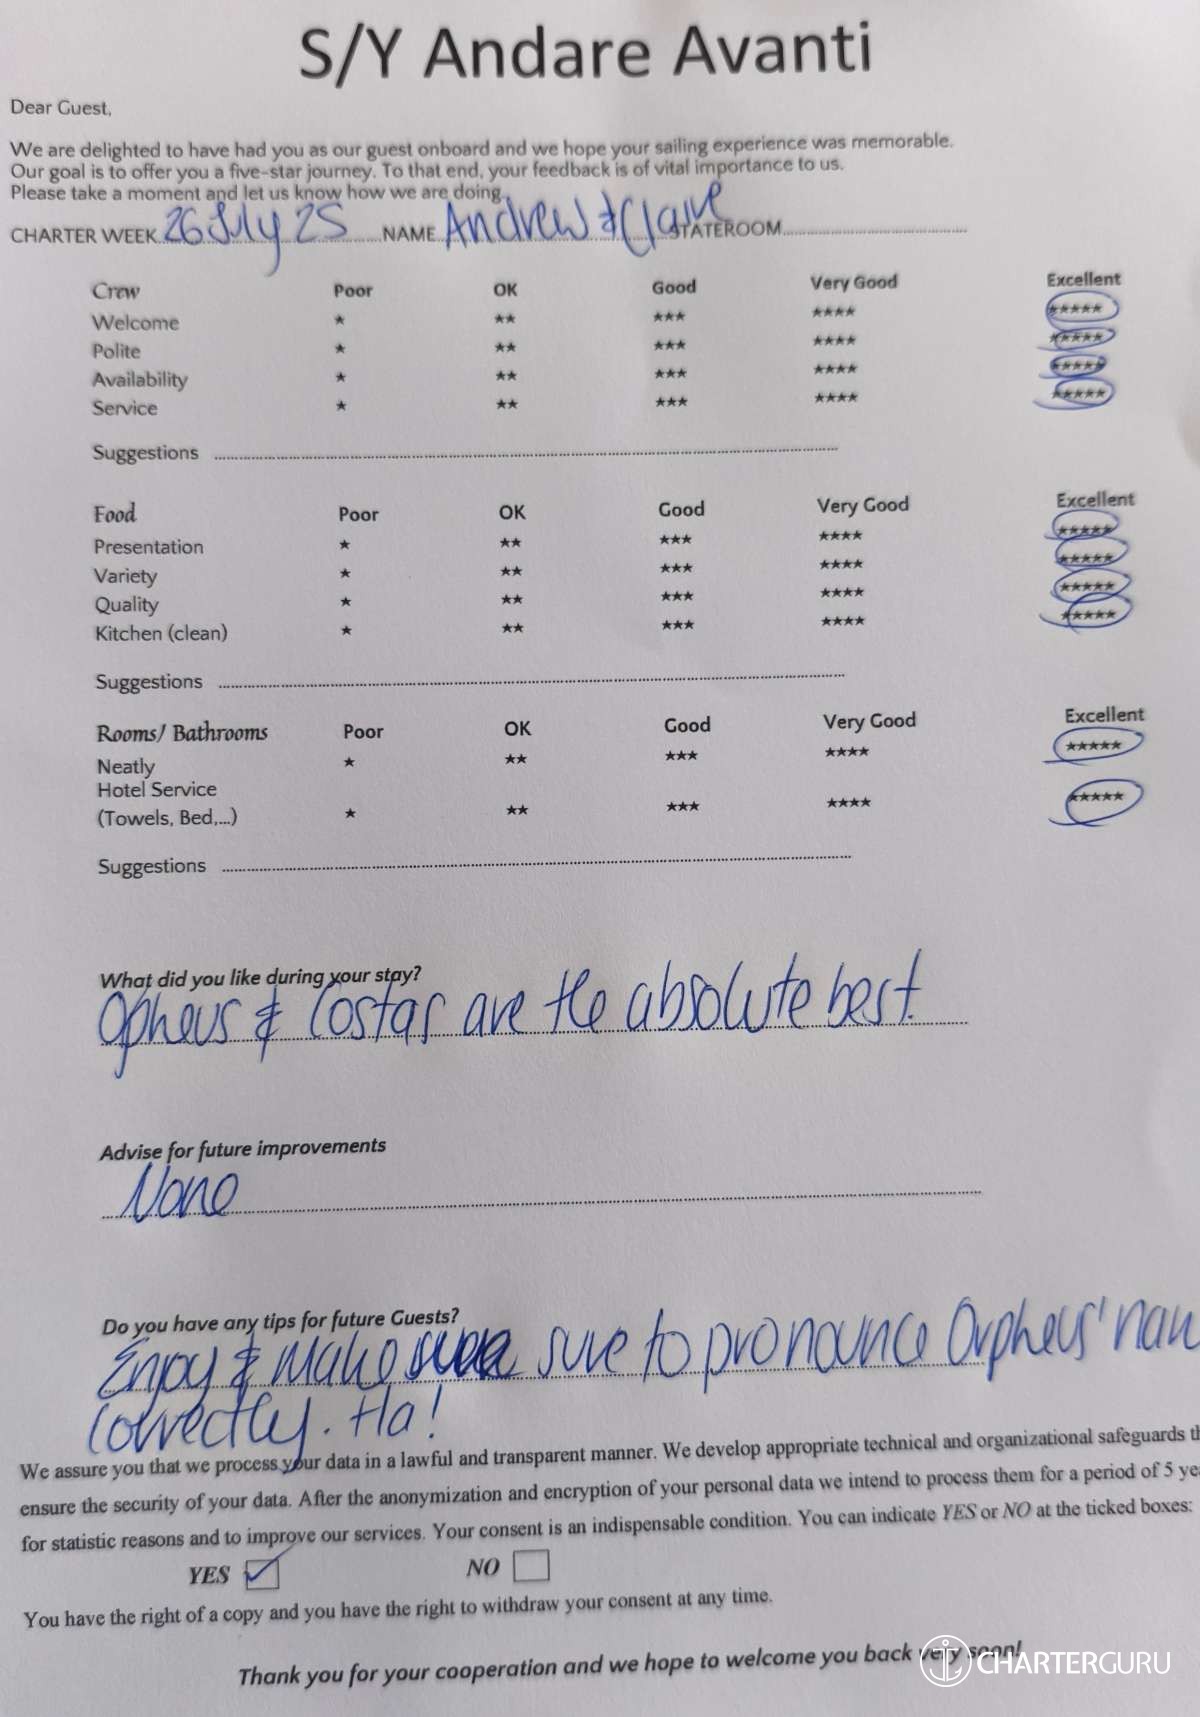 S/Y Andare Avanti
Dear Guest,
We are delighted to have had you as our guest onboard and we hope your sailing experience was memorable.
Our goal is to offer you a five-star journey. To that end, your feedback is of vital importance to us.
Please take a moment and let us know how we are doing.
CHARTER WEEK 26 July 25 NAME Andrew & Claire STATEROOM
Crew Poor OK Good Very Good Excellent
Welcome ★ ★★ ★★★ ★★★★ ★★★★★
Polite ★ ★★ ★★★ ★★★★ ★★★★★
Availability ★ ★★ ★★★ ★★★★ ★★★★★
Service ★ ★★ ★★★ ★★★★ ★★★★★
Suggestions
Food Poor OK Good Very Good Excellent
Presentation ★ ★★ ★★★ ★★★★ ★★★★★
Variety ★ ★★ ★★★ ★★★★ ★★★★★
Quality ★ ★★ ★★★ ★★★★ ★★★★★
Kitchen (clean) ★ ★★ ★★★ ★★★★ ★★★★★
Suggestions
Rooms/ Bathrooms Poor OK Good Very Good Excellent
Neatly ★ ★★ ★★★ ★★★★ ★★★★★
Hotel Service
(Towels, Bed,...) ★ ★★ ★★★ ★★★★ ★★★★★
Suggestions
What did you like during your stay?
Opheus & Costas are the absolute best.
Advise for future improvements
None
Do you have any tips for future Guests?
Enjoy & make sure to pronounce Orpheus' nam
correctly. Ha!
We assure you that we process your data in a lawful and transparent manner. We develop appropriate technical and organizational safeguards th
ensure the security of your data. After the anonymization and encryption of your personal data we intend to process them for a period of 5 yea
for statistic reasons and to improve our services. Your consent is an indispensable condition. You can indicate YES or NO at the ticked boxes:
YES NO
You have the right of a copy and you have the right to withdraw your consent at any time.
Thank you for your cooperation and we hope to welcome you back very soon!
CHARTERGURU